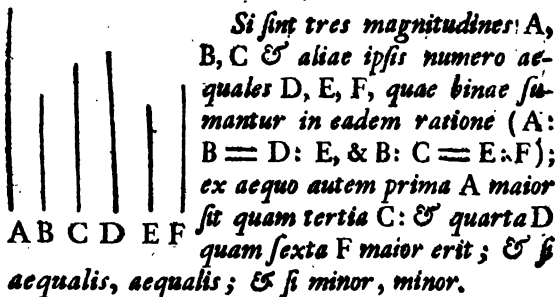 Si ſint tres magnitudines A,
B, C & aliae ipſis numero ae-
quales D, E, F, quae binae ſu-
mantur in eadem ratione (A:
B = D: E, & B: C = E: F);
ex aequo autem prima A maior
ſit quam tertia C: & quarta D
quam ſexta F maior erit; & ſi
aequalis, aequalis; & ſi minor, minor.
A B C D E F